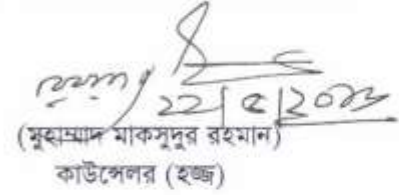 ২২|৫|২০২৩
(মুহাম্মাদ মাকসুদুর রহমান)
কাউন্সেলর (হজ্জ)